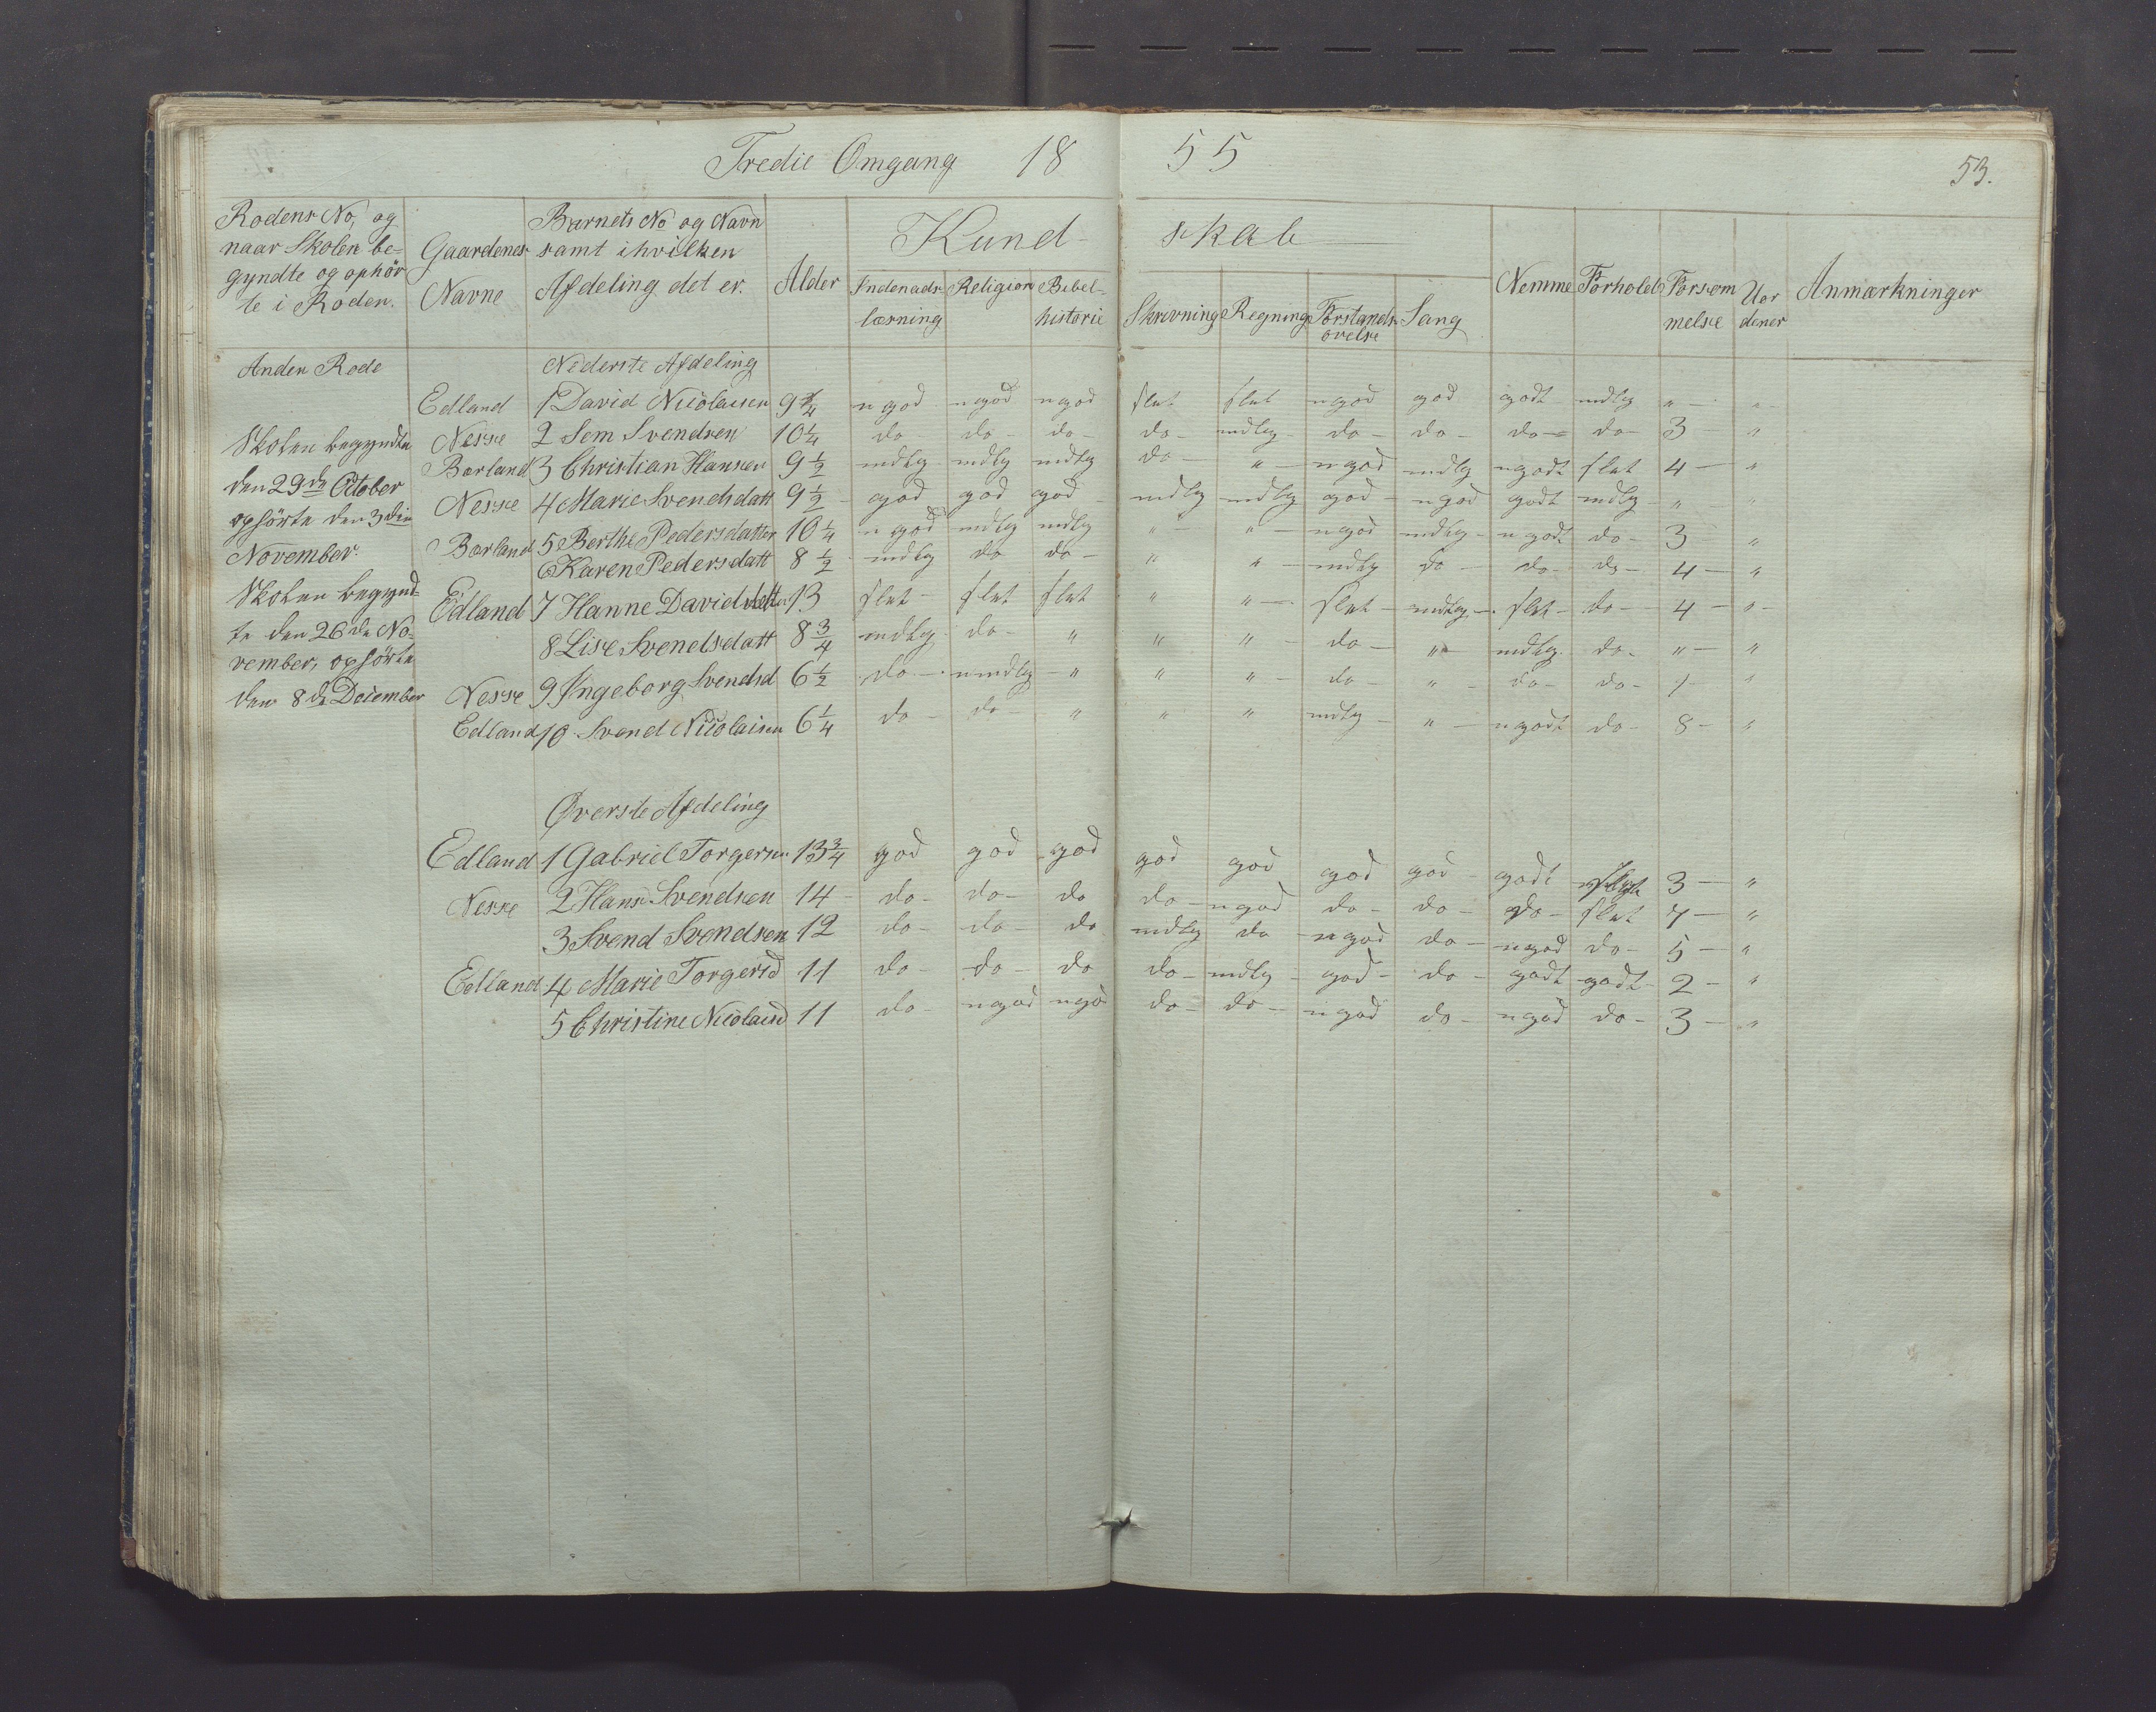 Tredie Omgang 18 55
53.
Rodens No, og naar Skolen begyndte og ophörte i Roden.
Gaardenes Navne
Barnets No og Navn samt ihvilken Afdeling det er.
Alder
Kundskab
Indenadslærning
Religion
Bibelhistorie
Skrivning
Regning
Forstandsövelse
Sang
Nemme
Forhold
Forsömmelse
Uordener
Anmærkninger
Anden Rode
Nederste Afdeling
Skolen begyndte
den 29de October
ophörte den 3die
November.
Skolen begynd-
te den 26de No-
vember, ophörte
den 8de December
Edland 1 David Nicolaisen 9 3/4 ngod ngod ngod slet slet ngod god godt mdlg " "
Nesse 2 Sem Svendsen 10 1/4 do do do do mdlg do do do do 3 "
Borland 3 Christian Hansen 9 1/2 mdlg mdlg mdlg do " ngod mdlg ngodt slet 4 "
Nesse 4 Marie Svendsdatt 9 1/2 god god god mdlg mdlg god ngod godt mdlg " "
Borland 5 Berthe Pedersdatter 10 1/4 ngod mdlg mdlg " " ngod mdlg ngodt do 3 "
6 Karen Pedersdatt 8 1/2 mdlg do do " " mdlg do do do 4 "
Edland 7 Hanne Davidsdatter 13 slet slet slet " " slet mdlg slet do 4 "
8 Lise Svendsdatt 8 3/4 mdlg do " " " do " mdlg do " "
Nesse 9 Ingeborg Svendsd 6 1/2 do umdlg " " " do " do do 1 "
Edland 10 Svend Nicolaisen 6 1/4 do do " " " mdlg " ngodt do 8 "
Øverste Afdeling
Edland 1 Gabriel Torgersen 13 3/4 god god god god god god god godt 3 "
Nesse 2 Hans Svendsen 14 do do do do ngod do do do slet 7 "
3 Svend Svendsen 12 do do do mdlg do ngod do ngod do 5 "
Edland 4 Marie Torgersd 11 do do do do mdlg god do godt godt 2 "
5 Christine Nicolaisd 11 do ngod ngod do do ngod do ngod do 3 "